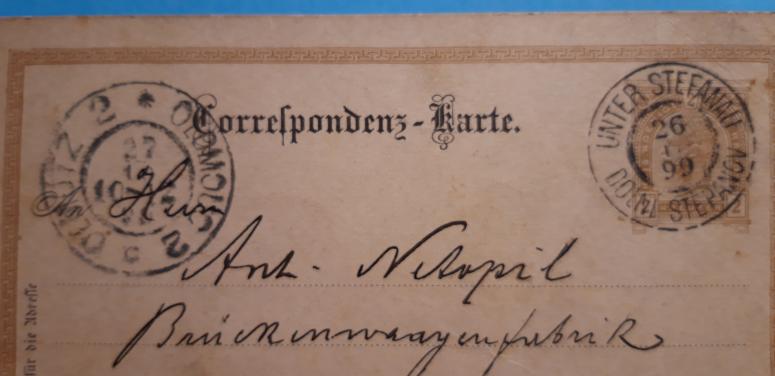 Correspondenz-Karte.
OLMÜTZ 2 * OLOMOUC 2
27
UNTER STEFANAU
26
99
DOLNÍ ŠTEPANOV
An Herrn
Ant. Netopil
Brückenwaagenfabrik
für die Adresse